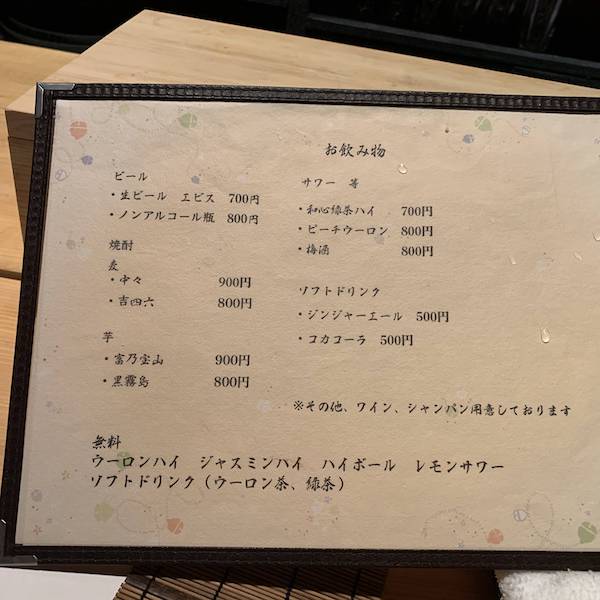 お飲み物
ビール
・生ビール エビス 700円
・ノンアルコール瓶 800円
焼酎
麦
・中々 900円
・吉四六 800円
芋
・富乃宝山 900円
・黒霧島 800円
サワー 等
・和心緑茶ハイ 700円
・ピーチウーロン 800円
・梅酒 800円
ソフトドリンク
・ジンジャーエール 500円
・コカコーラ 500円
※その他、ワイン、シャンパン用意しております
無料
ウーロンハイ ジャスミンハイ ハイボール レモンサワー
ソフトドリンク（ウーロン茶、緑茶）